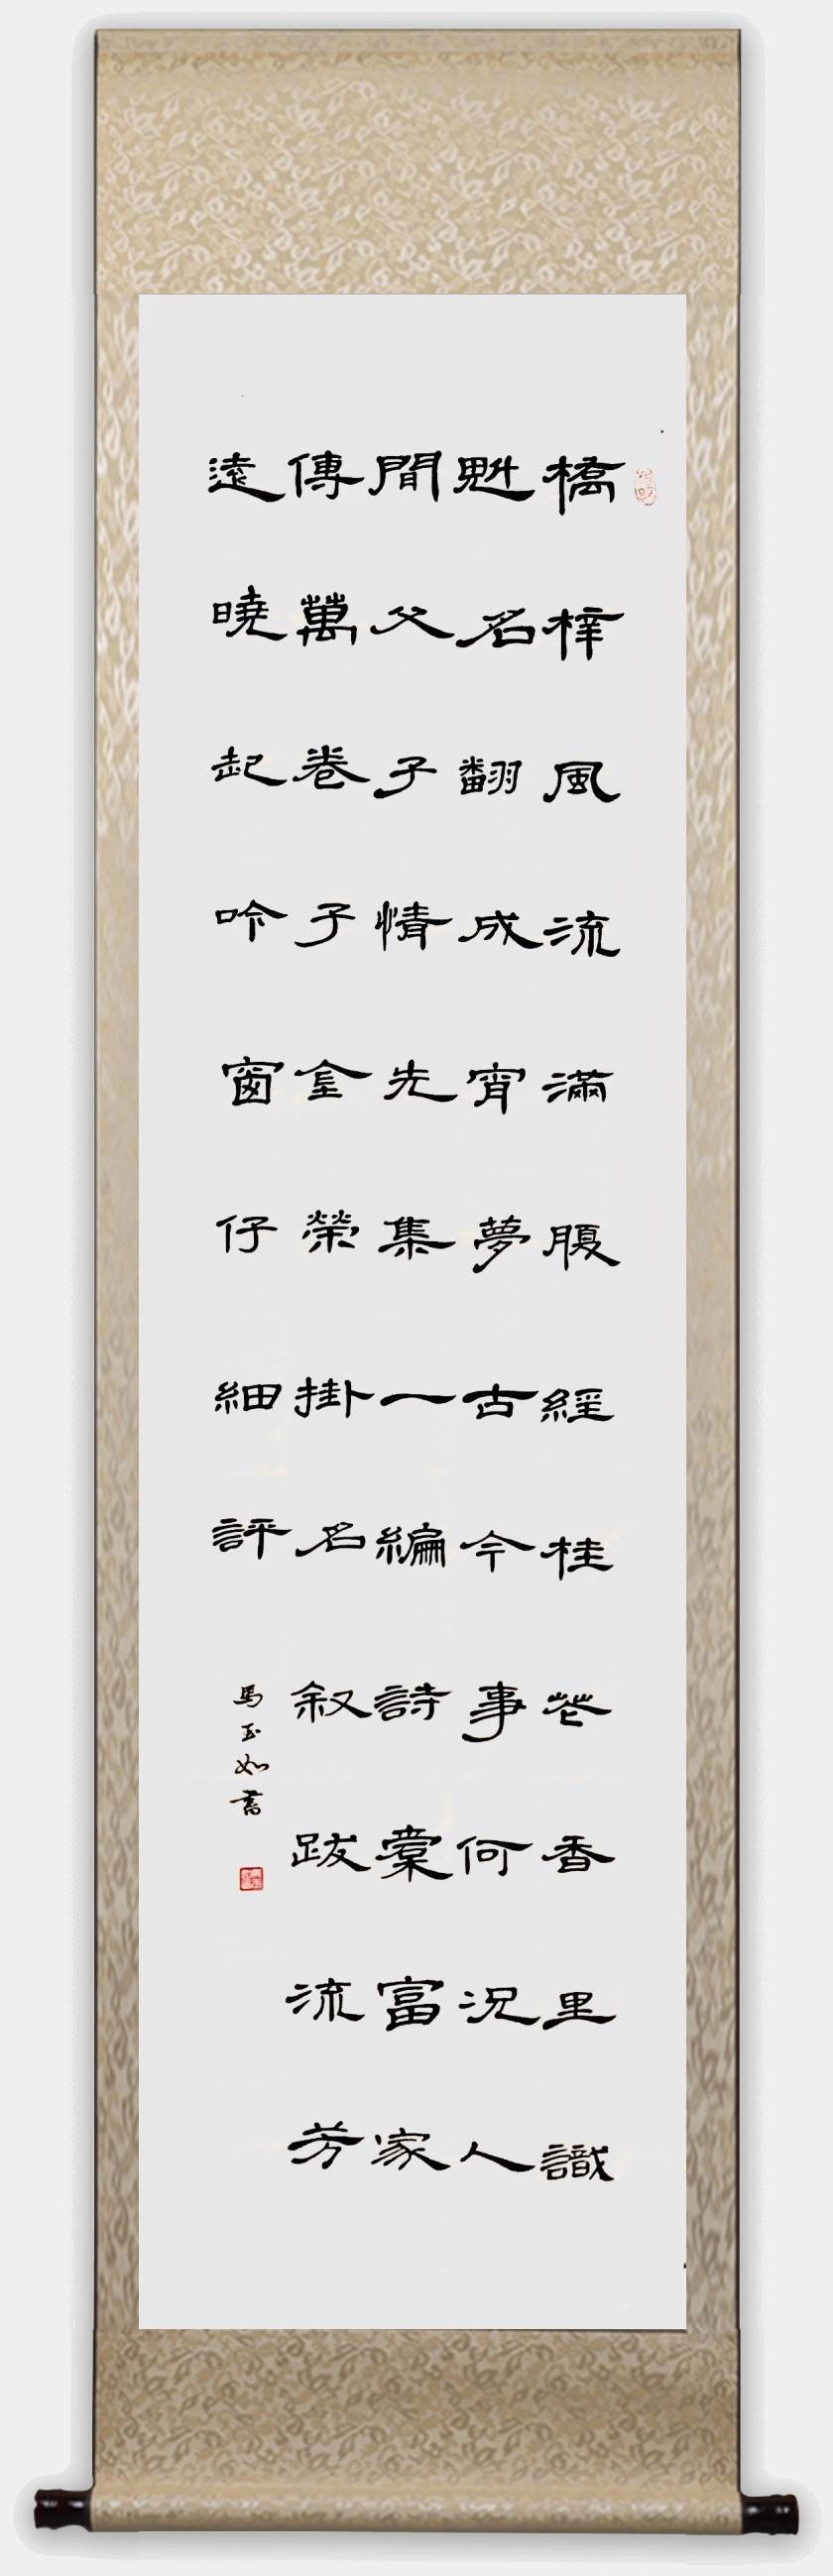 橋梓風流滿腹經桂花香里識
魁名翻成宵夢古今事何況人
間父子情先集一編詩棠富家
傳萬卷子金榮掛名敘跋流芳
遠曉起吟窗仔細評
馬玉如書